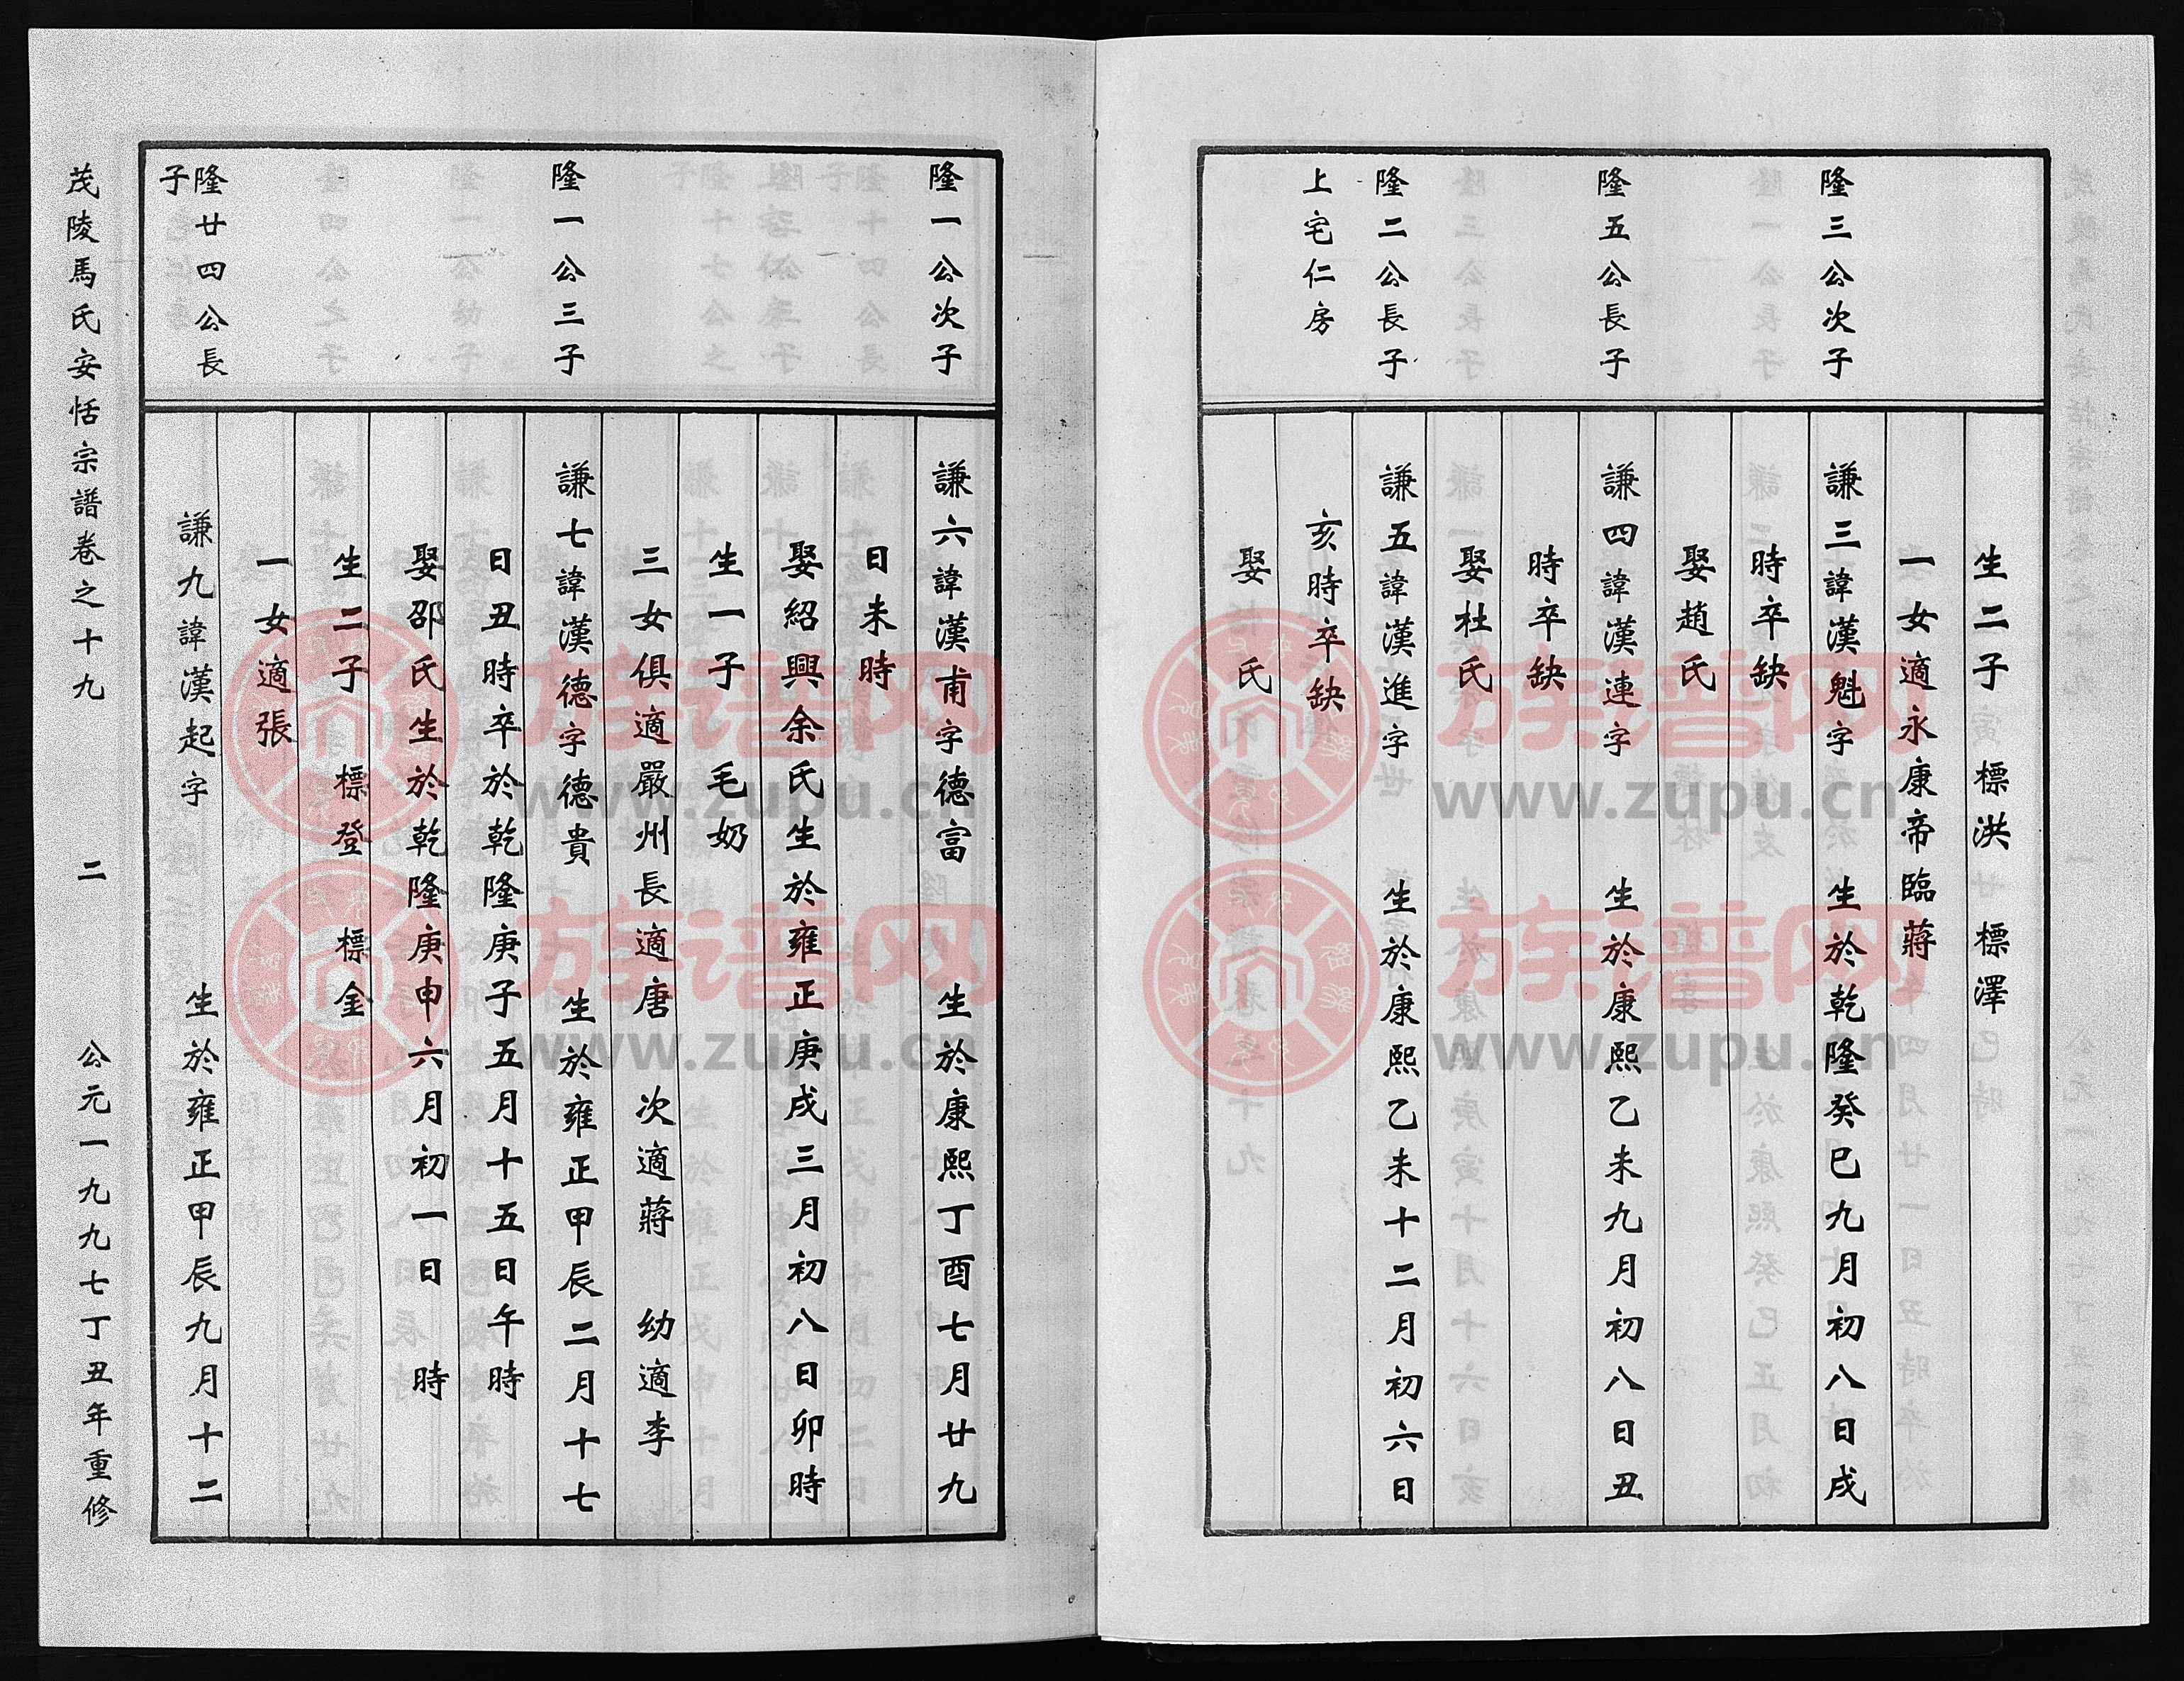 隆三公次子
隆五公長子
隆二公長子
上宅仁房
生二子　標洪　標澤
一女適永康帝臨蔣
謙三諱漢魁字　生於乾隆癸巳九月初八日戌
時卒缺
娶趙氏
謙四諱漢連字　生於康熙乙未九月初八日丑
時卒缺
娶杜氏
謙五諱漢進字　生於康熙乙未十二月初六日
亥時卒缺
娶　氏
隆一公次子
隆一公三子
隆廿四公長
子
謙六諱漢甫字德富　生於康熙丁酉七月廿九
日未時
娶紹興余氏生於雍正庚戌三月初八日卯時
生一子　毛奶
三女俱適嚴州長適唐　次適蔣　幼適李
謙七諱漢德字德貴　生於雍正甲辰二月十七
日丑時卒於乾隆庚子五月十五日午時
娶邵氏生於乾隆庚申六月初一日　時
生二子　標登　標金
一女適張
謙九諱漢起字　生於雍正甲辰九月十二
茂陵馬氏安恬宗譜卷之十九　二　公元一九九七丁丑年重修
族谱网
www.zupu.cn
族谱网
www.zupu.cn
族谱网
www.zupu.cn
族谱网
www.zupu.cn